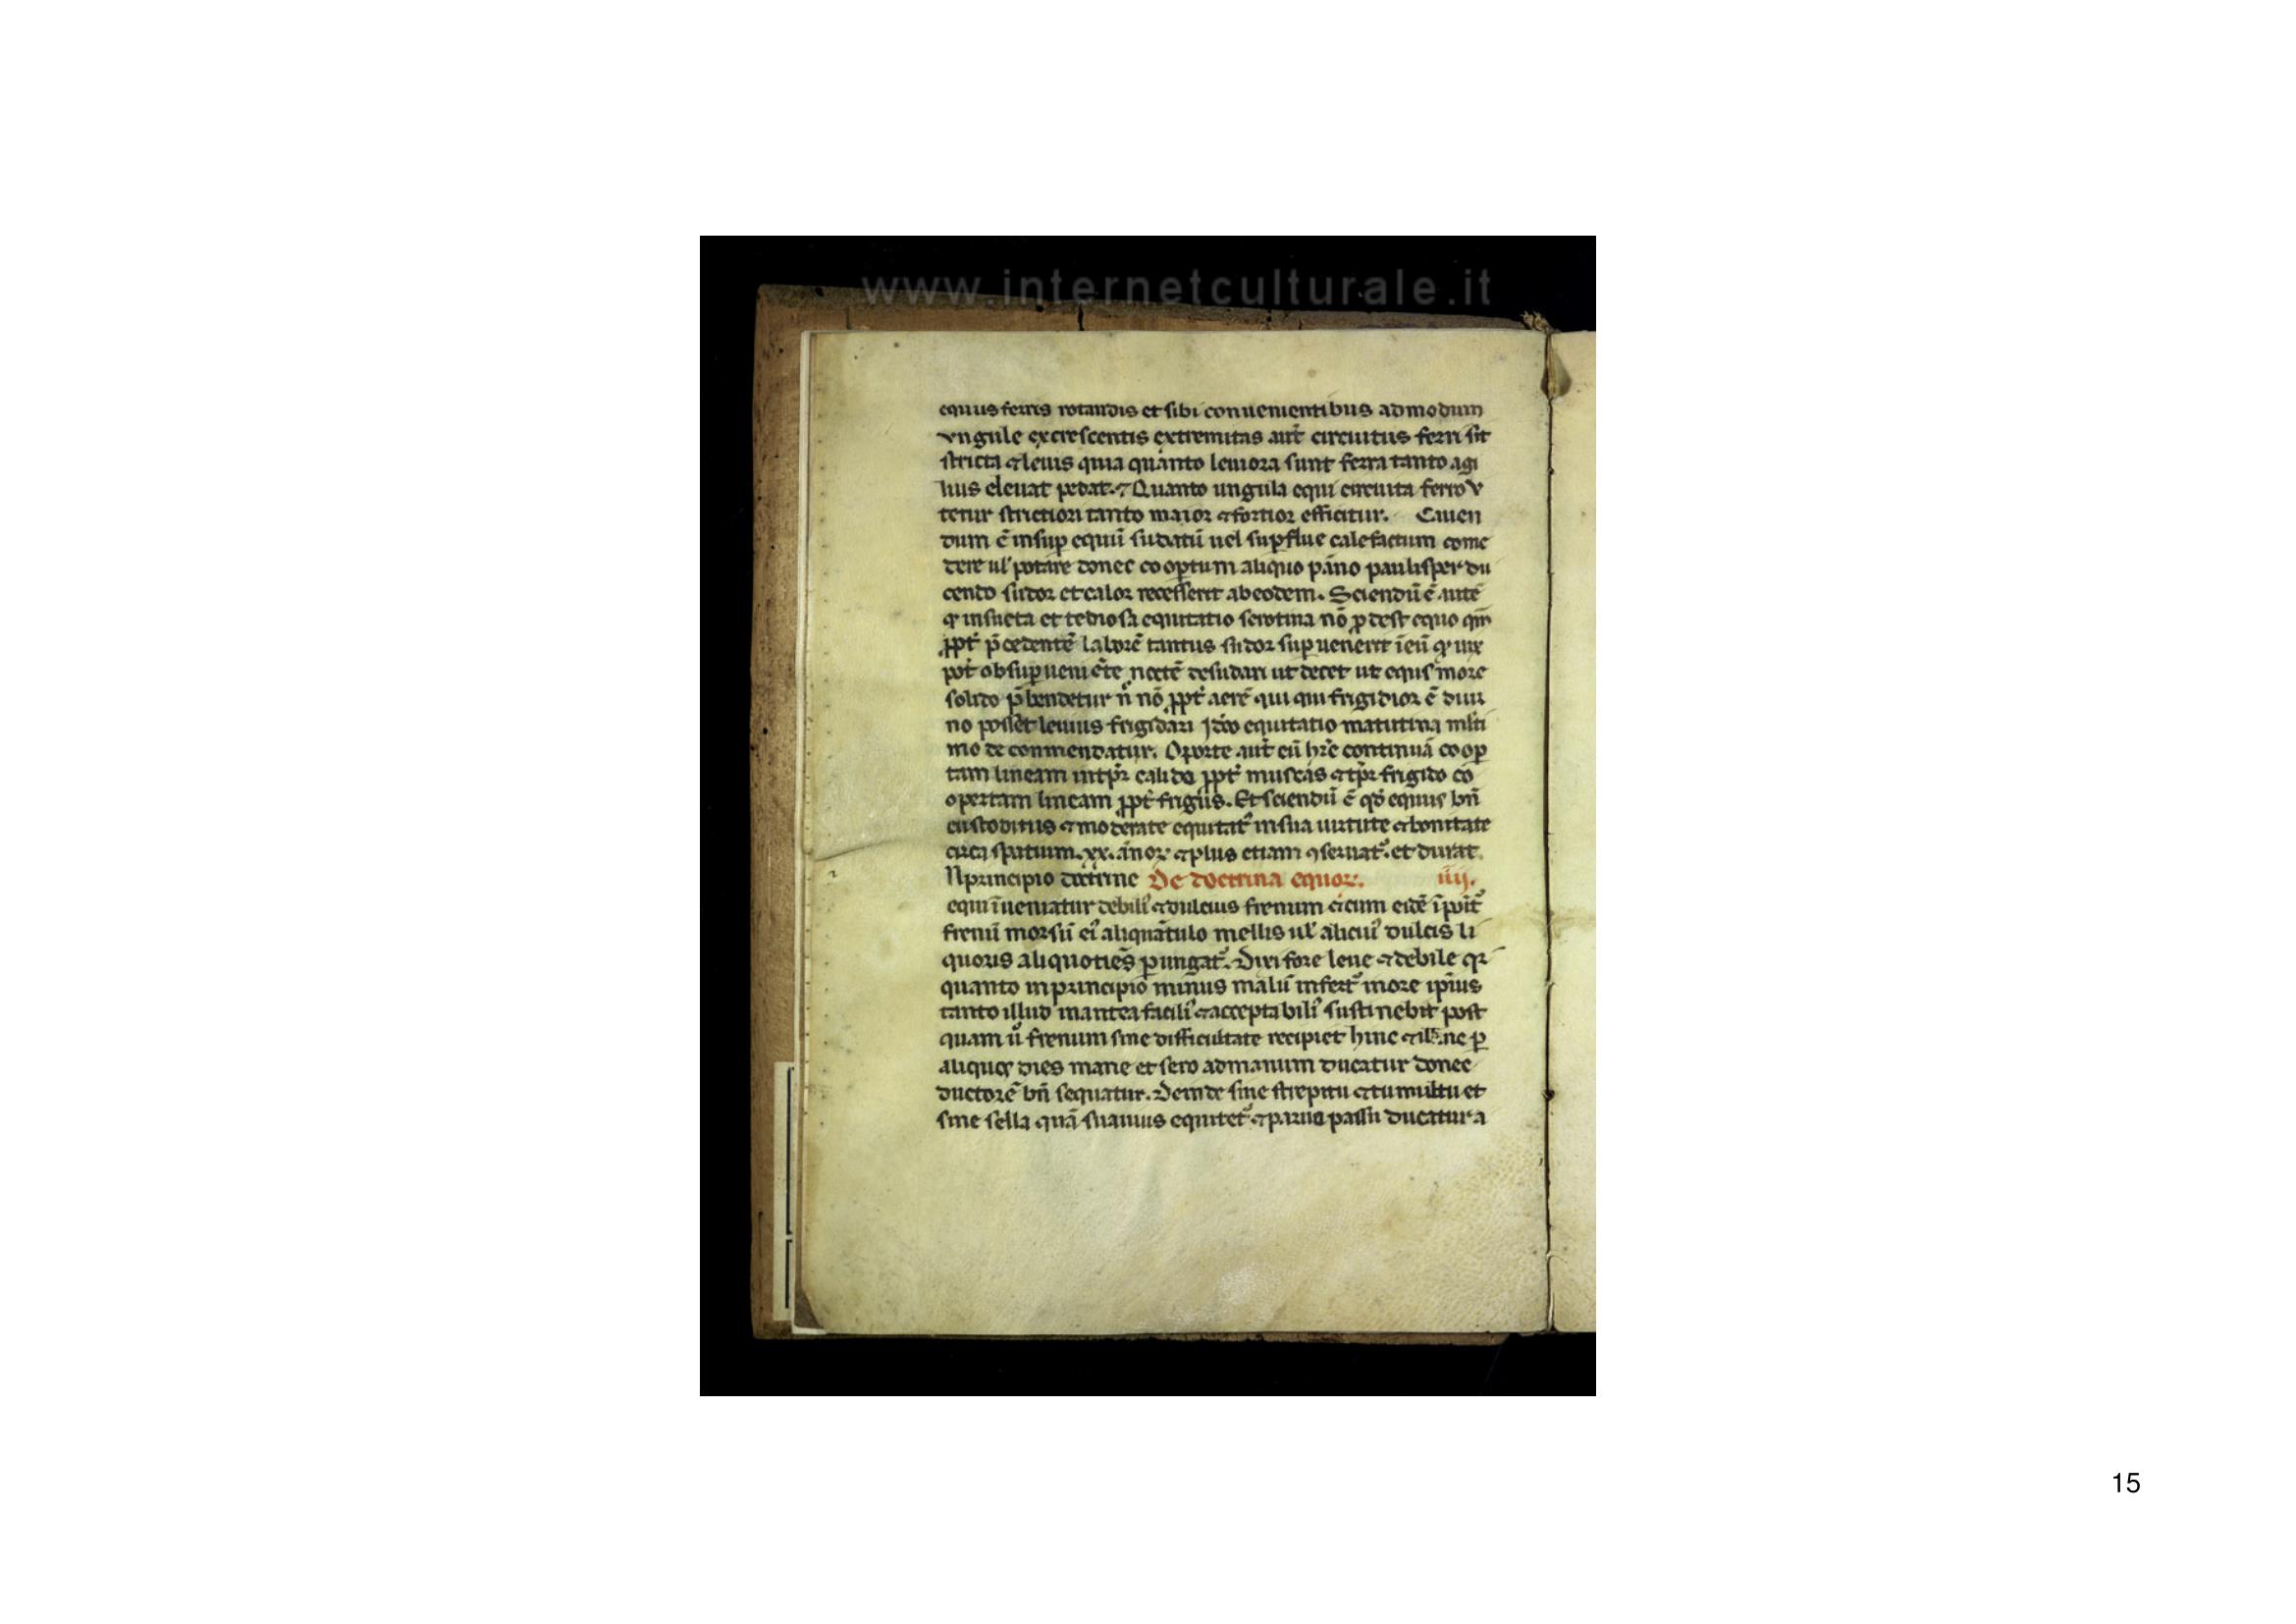 www.internetculturale.it
equus ferris rotundis et sibi conuenientibus ad modum
vngule excrescentis extremitas aut̄ circuitus ferri sit
stricta ⁊ leuis quia quanto leuiora sunt ferra tanto agi
lius eleuat pedat. ⁊ Quanto ungula equi circuita ferro v
tetur strictiori tanto maior ⁊ fortior efficitur. Cauen
dum ē insup equū sudatū uel supflue calefactum come
dere ul' potare donec cooptum aliquo pāno paulisper du
cendo sudor et calor recesserit ab eodem. Sciendū ē autē
ꝙ insueta et tediosa equitatio serotina nō ꝓdest equo
ꝓpt' p̄cedentē laborē tantus sudor sup uenerit ī eū ꝙ uix
pot' ob supueniētē noctē desudari ut decet ut equs more
solito p̄bendetur nō ꝓpt' aerē qui frigidior ē diur
no posset leuius frigidari Ideo equitatio matutina
mo de conmendatur. Oporte aut̄ eū hr̄e continuā coop
tam lineam in tp̄r calido ꝓpt' muscas ⁊ tp̄r frigido co
opertam lineam ꝓpt' frigus. Et sciendū ē qd' equus bn̄
custoditus ⁊ moderate equitat' in sua uirtute ⁊ bonitate
circa spatium .xx. ānoꝝ ⁊ plus etiam ꝯseruat'. et durat.
N principio doctrine De doctrina equoꝝ. iiij.
equi īueniatur debili' ⁊ dulcius frenum ⁊ cum eidē īpoit'
frenū morsū ei' aliquātulo mellis ul' alicui' dulcis li
quoris aliquotiēs ꝑungat'. Dixi fore leue ⁊ debile qr
quanto in principio minus malū infert' more ipius
tanto illud in antea facili' ⁊ acceptabili' sustinebit post
quam ū frenum sine difficultate recipiet hinc ⁊ ꝑ
aliquos dies mane et sero ad manum ducatur donec
ductorē bn̄ sequatur. Deinde sine strepitu ⁊ tumultu et
sine sella quā suauius equitet' ⁊ paruo passu ducatur a
15